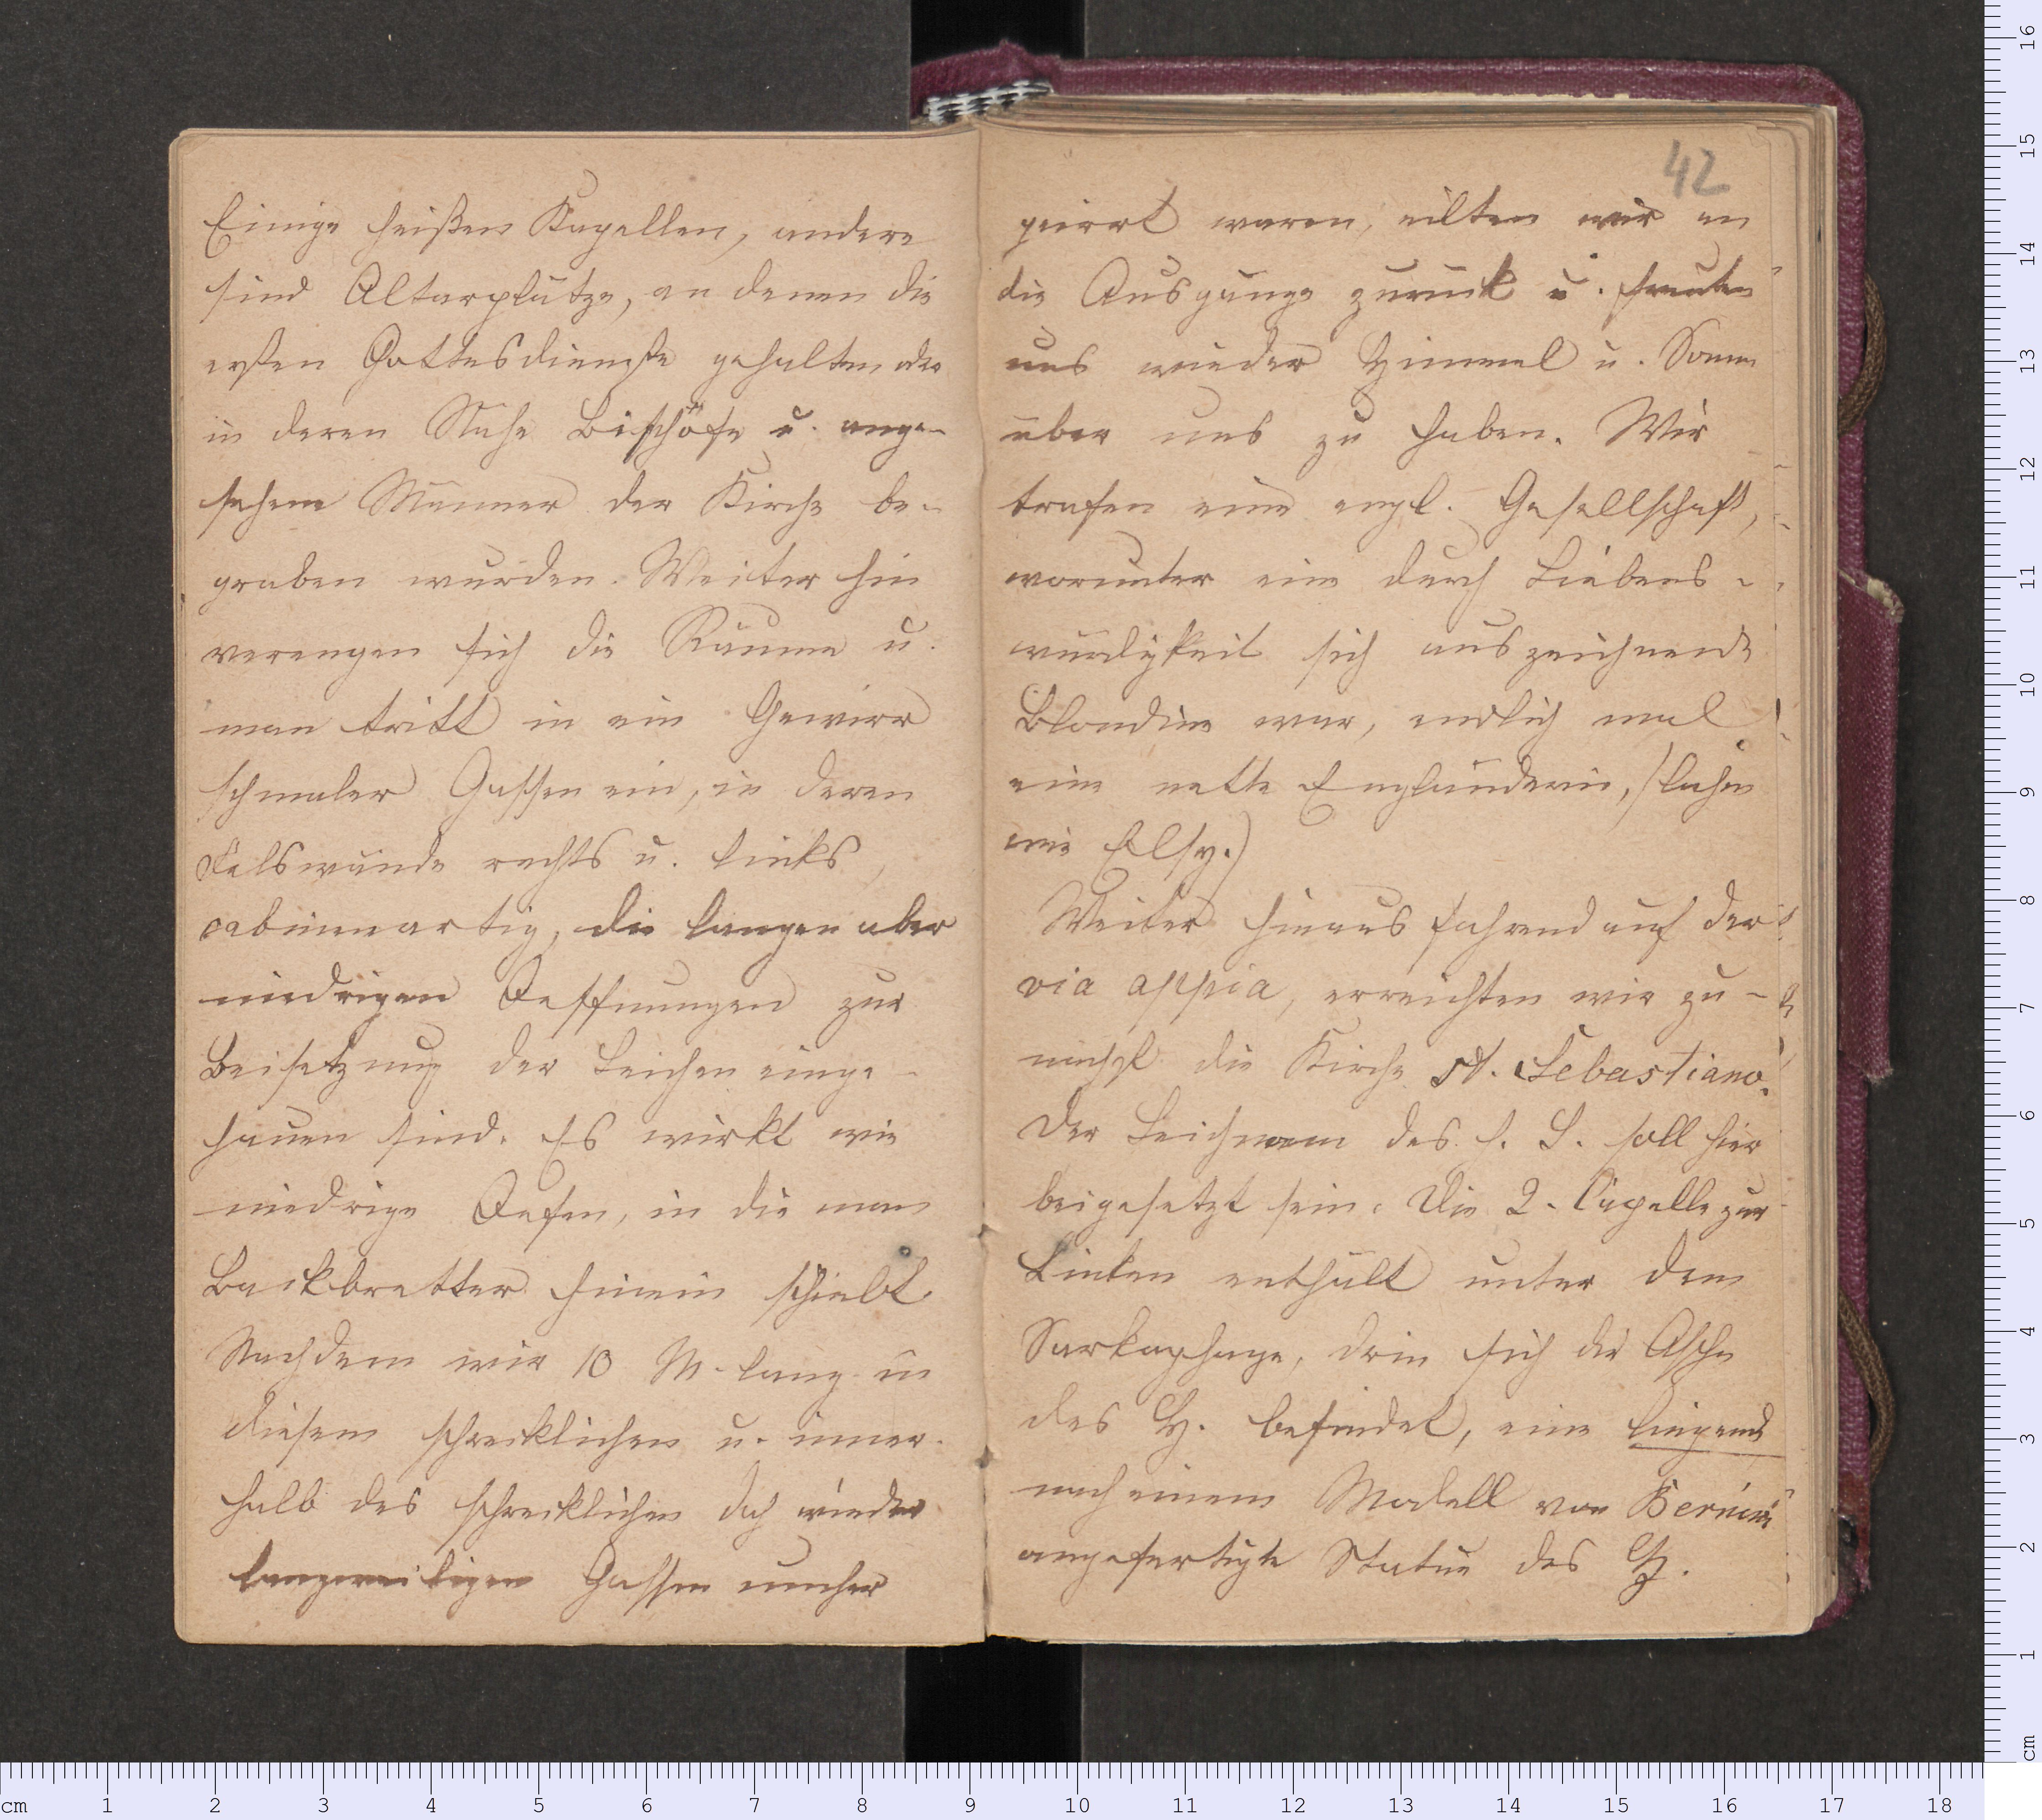 Einige heißen Kapellen, andere
sind Altarplätze, an denen die
ersten Gottesdienste gehalten oder
in deren Nähe Bischöfe u. ange-
sehene Männer der Kirche be-
graben wurden. Weiter hin
verengen sich die Räume u.
man tritt in ein Gewirr
schmaler Gassen ein, in deren
Felswände rechts u. links,
cabinenartig, die langen aber
niedrigen Oeffnungen zur
Beisetzung der Leichen einge-
hauen sind. Es wirkt wie
niedrige Oefen, in die man
Backbretter hinein schiebt.
Nachdem wir 10 M. lang in
diesem schrecklichen u. inner-
halb des schrecklichen doch wieder
langweiligen Gassen umher
42
geirrt waren, eilten wir an
die Ausgänge zurück u. freuten
uns wieder Himmel u. Sonne
über uns zu haben. Wir
trafen eine engl. Gesellschaft,
worunter eine durch Liebens-
würdigkeit sich auszeichnende
Blondine war, endlich mal
eine nette Engländerin, (
wie Elsy.)
Weiter hinaus fahrend auf der
via appia, erreichten wir zu-
nächst die Kirche St. Sebastiano.
Der Leichnam des h. S. soll hier
beigesetzt sein. Die 2. Capelle zur
Linken enthält unter dem
Sarkophage, drin sich die Asche
des H. befindet, eine liegende
nach einem Modell von Bernini
angefertigte Statue des H.